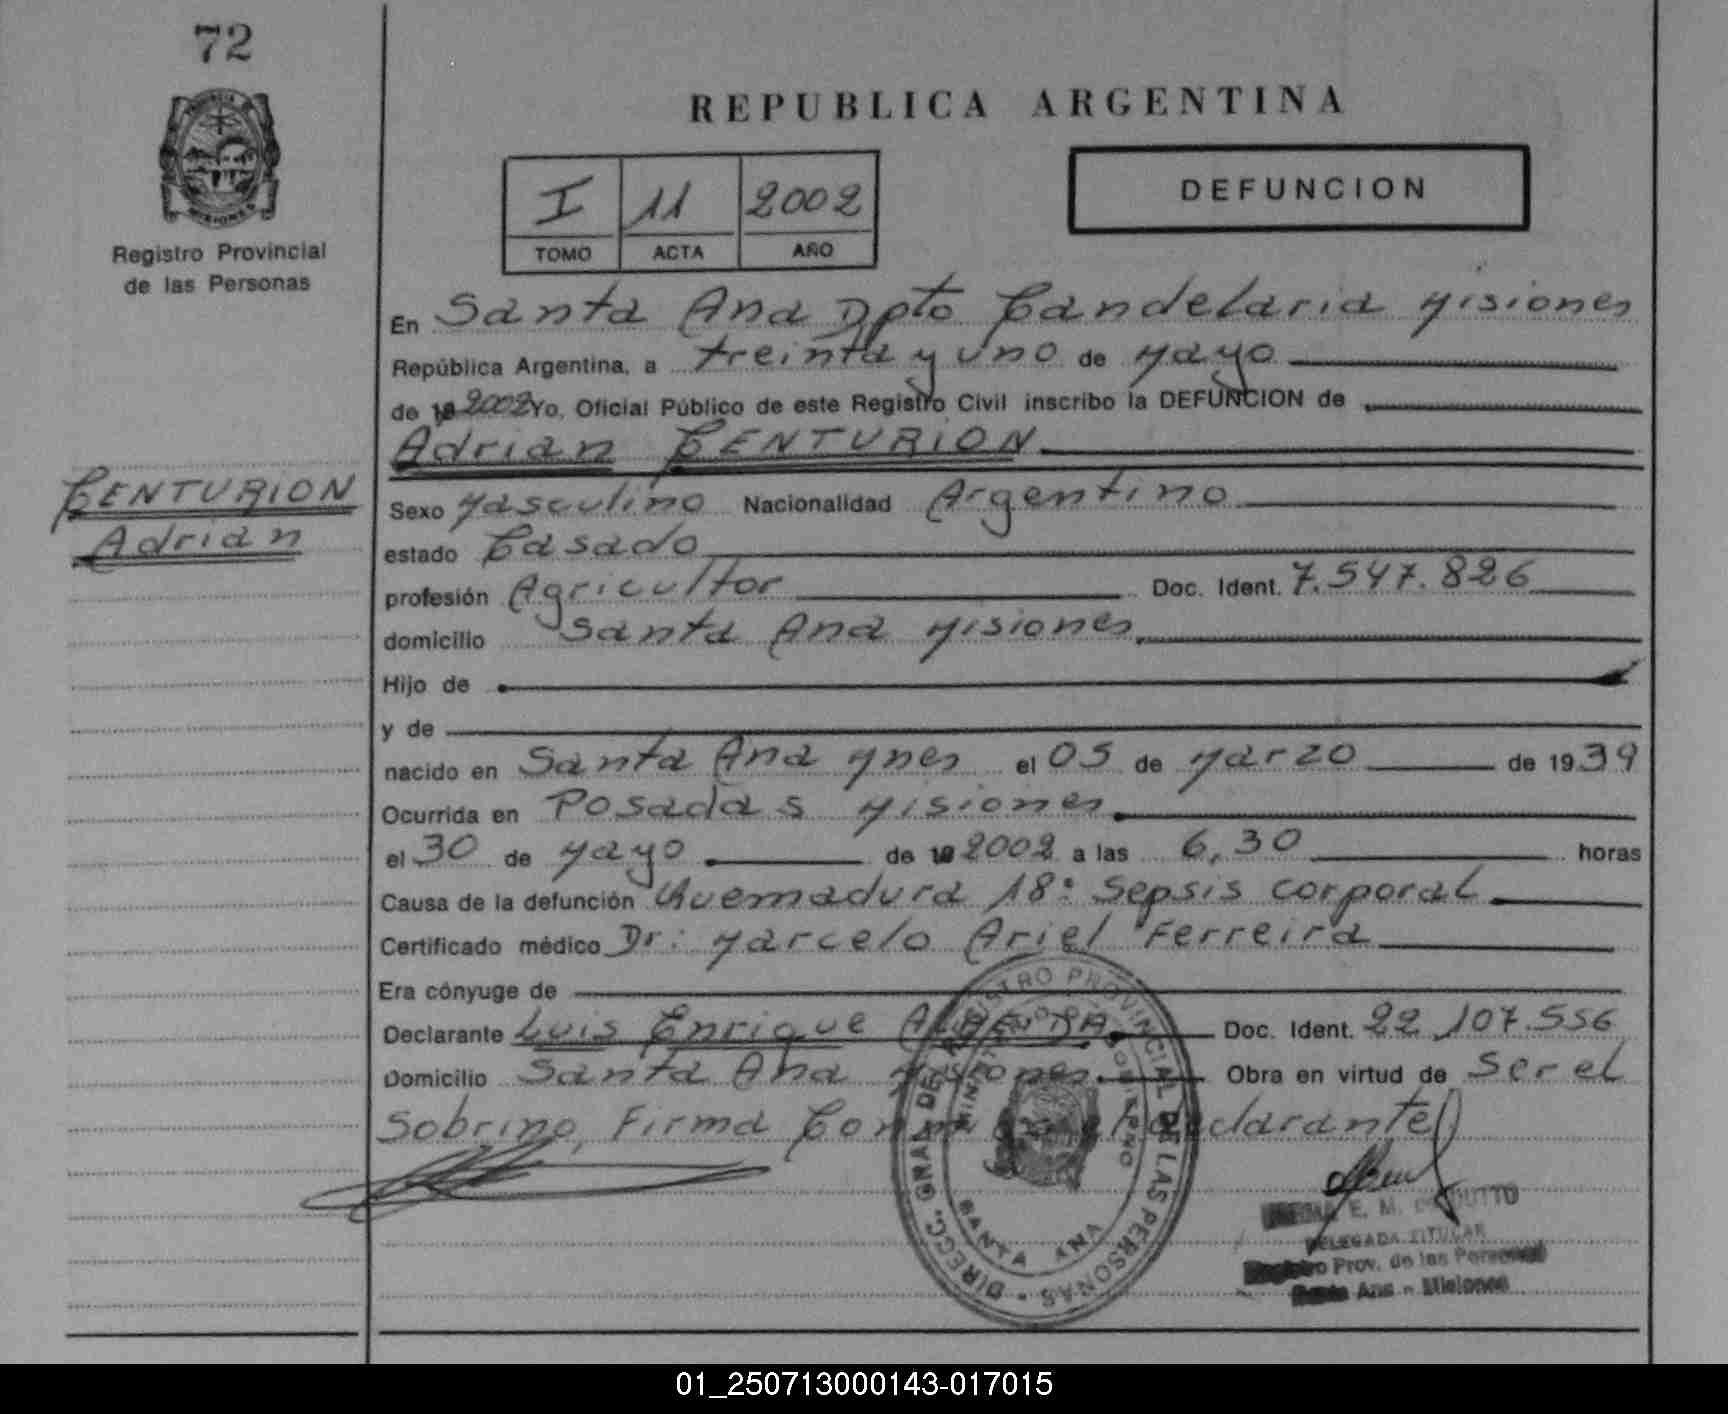 72
MISIONES
Registro Provincial
de las Personas
CENTURION
Adrian
REPUBLICA ARGENTINA
I 11 2002
TOMO ACTA AÑO
DEFUNCION
En Santa Ana Dpto Candelaria Misiones
República Argentina, a treinta y uno de Mayo
de 19 2002 Yo, Oficial Público de este Registro Civil inscribo la DEFUNCION de
Adrian CENTURION
Sexo Masculino Nacionalidad Argentino
estado Casado
profesión Agricultor Doc. Ident. 7.547.826
domicilio Santa Ana Misiones
Hijo de
y de
nacido en Santa Ana Mnes el 05 de Marzo de 1939
Ocurrida en Posadas Misiones
el 30 de Mayo de 19 2002 a las 6,30 horas
Causa de la defunción Quemadura 18: Sepsis corporal
Certificado médico Dr: Marcelo Ariel Ferreira
Era cónyuge de
Declarante Luis Enrique Doc. Ident. 22.107.556
Domicilio Santa Ana Misiones Obra en virtud de Ser el
Sobrino, Firma declarante
DIRECC. GRAL. DEL REGISTRO PROVINCIAL DE LAS PERSONAS
MINISTERIO DE GOBIERNO
SANTA ANA
E. M.
DELEGADA TITULAR
Registro Prov. de las Personas
Santa Ana - Misiones
01_250713000143-017015